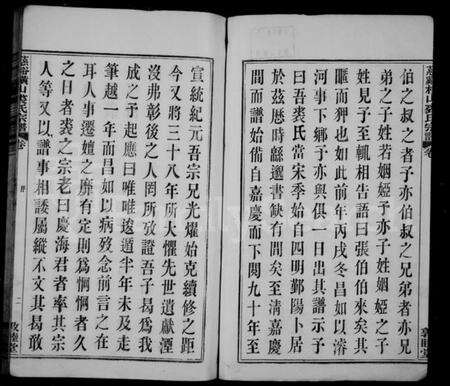 伯之叔之者予亦伯叔之兄弟者亦兄
弟之子姓若姻婭予亦子姓姻婭之子
姓見予至輒相告語曰張伯伯來矣其
暱而狎也如此前年丙戌冬昌如以濬
河事下鄉予亦與俱一日出其譜示予
曰吾裘氏當宋季始自四明鄞陽卜居
於茲歷時甚遠選書缺有間矣至清嘉慶
間而譜始備自嘉慶而下閱九十年至
慈谿橫山裘氏宗譜
卷
宣統紀元吾宗兄光燿始克續修之距
今又將三十八年所大懼先世遺獻湮
沒弗彰後之人罔所攷證吾子曷為我
成之予起應曰唯唯逡遁半年未及走
筆越一年而昌如以病歿念前言之在
耳人事遷嬗之靡有定則為惘惘者久
之日者裘之宗老曰慶海君者率其宗
人等又以譜事相諉屬縱不文其曷敢
慈谿橫山裘氏宗譜
卷
序
二
敦睦堂